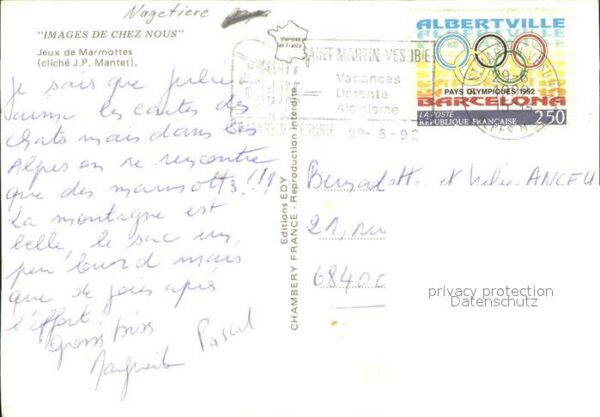 Nagetiere
"IMAGES DE CHEZ NOUS"
Jeux de Marmottes
(cliché J.P. Mantet).
Je sais que Julie
aime les cartes des
chats mais dans les
Alpes on ne rencontre
que des marmottes !!!
La montagne est
belle, le sac un
peu lourd mais
que de joies après
l'effort.
Gros bises
Marguerite Pascal
Editions EDY
CHAMBERY FRANCE - Reproduction interdite
SAINT-MARTIN-VESUBIE
Vacances
Détente
Alpinisme
29-6-92
ALBERTVILLE
PAYS OLYMPIQUES 1992
BARCELONA
LA POSTE
RÉPUBLIQUE FRANÇAISE
2,50
29-6
Bernadette et
21, rue
68400
privacy protection
Datenschutz